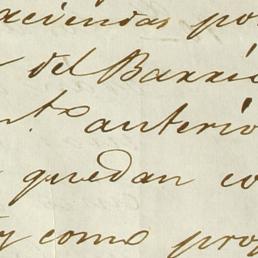 aciendas po
del Barri
nt.º anterio
quedan co
y como pro